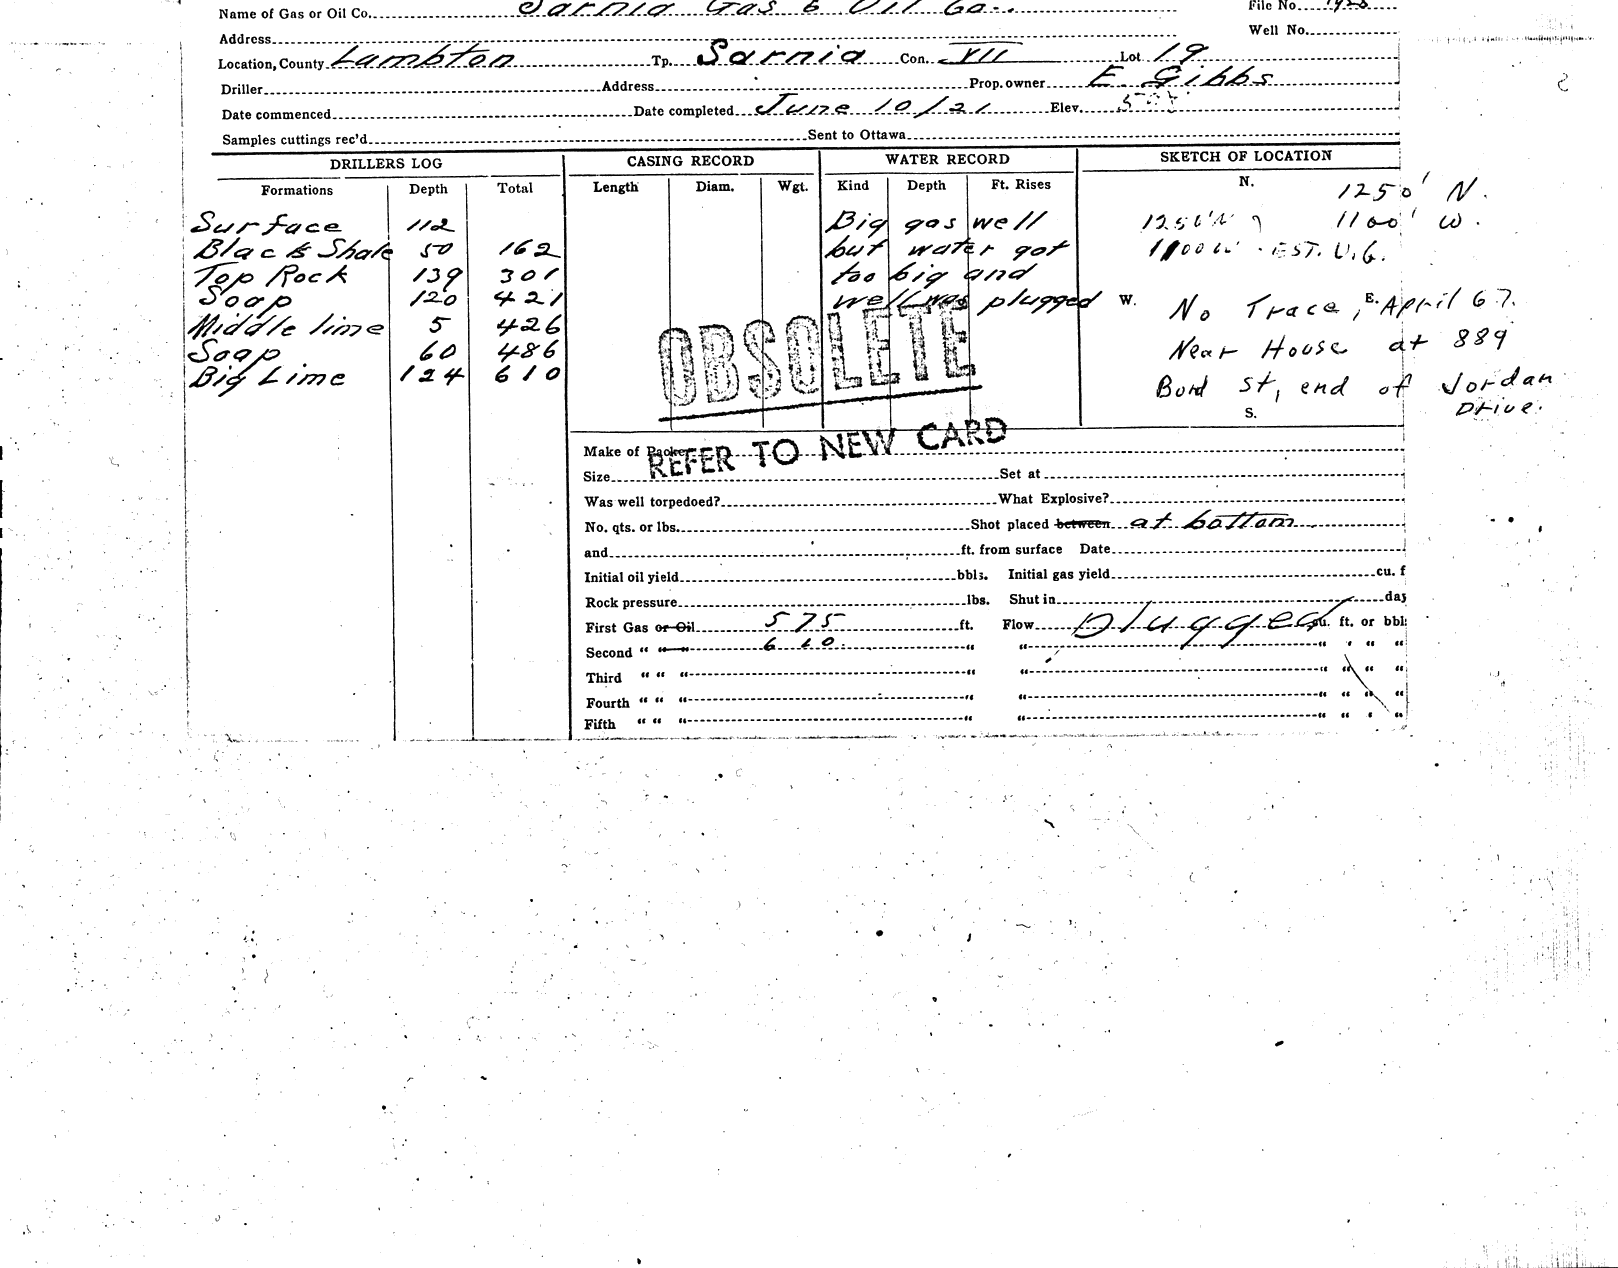 Name of Gas or Oil Co. Sarnia Gas & Oil Co. File No. 1928
Address Well No.
Location, County Lambton Tp. Sarnia Con. VII Lot 19
Driller Address Prop. owner E. Gibbs
Date commenced Date completed June 10/21 Elev.
Samples cuttings rec'd Sent to Ottawa
DRILLERS LOG CASING RECORD WATER RECORD SKETCH OF LOCATION
Formations Depth Total Length Diam. Wgt. Kind Depth Ft. Rises N. 1250' N.
Surface 112 Big gas well 1250'N 1100' W.
Black Shale 50 162 but water got 1100 W - EST. U.G.
Top Rock 139 301 too big and
Soap 120 421 well was plugged W. No Trace, E. April 67.
Middle lime 5 426
Soap 60 486 Near House at 889
Big Lime 124 610 St, end of Jordan
Drive.
S.
OBSOLETE
REFER TO NEW CARD
Make of Packer
Size Set at
Was well torpedoed? What Explosive?
No. qts. or lbs. Shot placed between at bottom
and ft. from surface Date
Initial oil yield bbls. Initial gas yield cu. f
Rock pressure lbs. Shut in day
First Gas or Oil 575 ft. Flow Plugged cu. ft. or bbl
Second " " " 610. " " " " " "
Third " " " " " " " " "
Fourth " " " " " " " " "
Fifth " " " " " " " " "